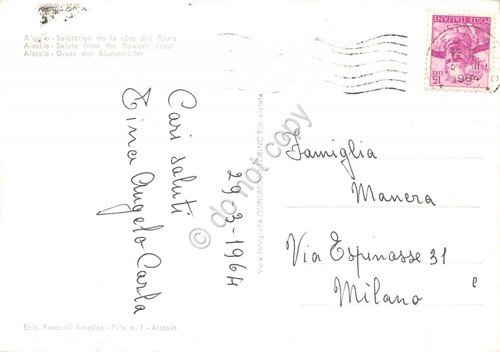 Alassio - Salutation de la côte des fleurs
Alassio - Salute from the flowers' coast
Alassio - Gruss der Blumen-Ufer
POSTE ITALIANE
LIRE 15
1964
Cari saluti
Tina Angelo Carla
29-3-1964
Vera fotografia
TORINO Rip. vietata
© do not copy
Famiglia
Manera
Via Espinasse 31
Milano
Ediz. Pasquali Amedeo - Priv. n. 1 - Alassio